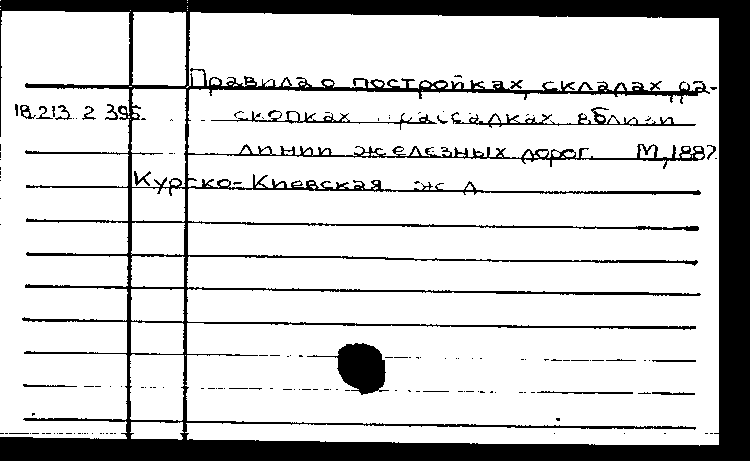 Правила о постройках, складах, ра-
18.213.2.395. скопках рассадках вблизи
линии железных дорог. М, 1887.
Курско-Киевская ж д